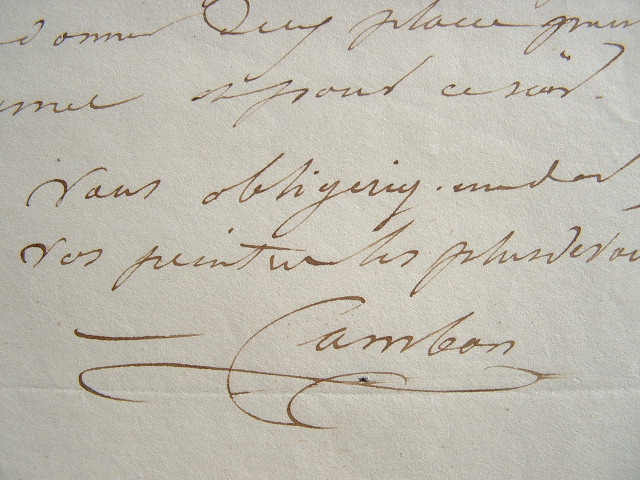 donner deux places pour
et pour ce soir.
Vous obligerez. un de
vos peintres les plus devou
Cambon